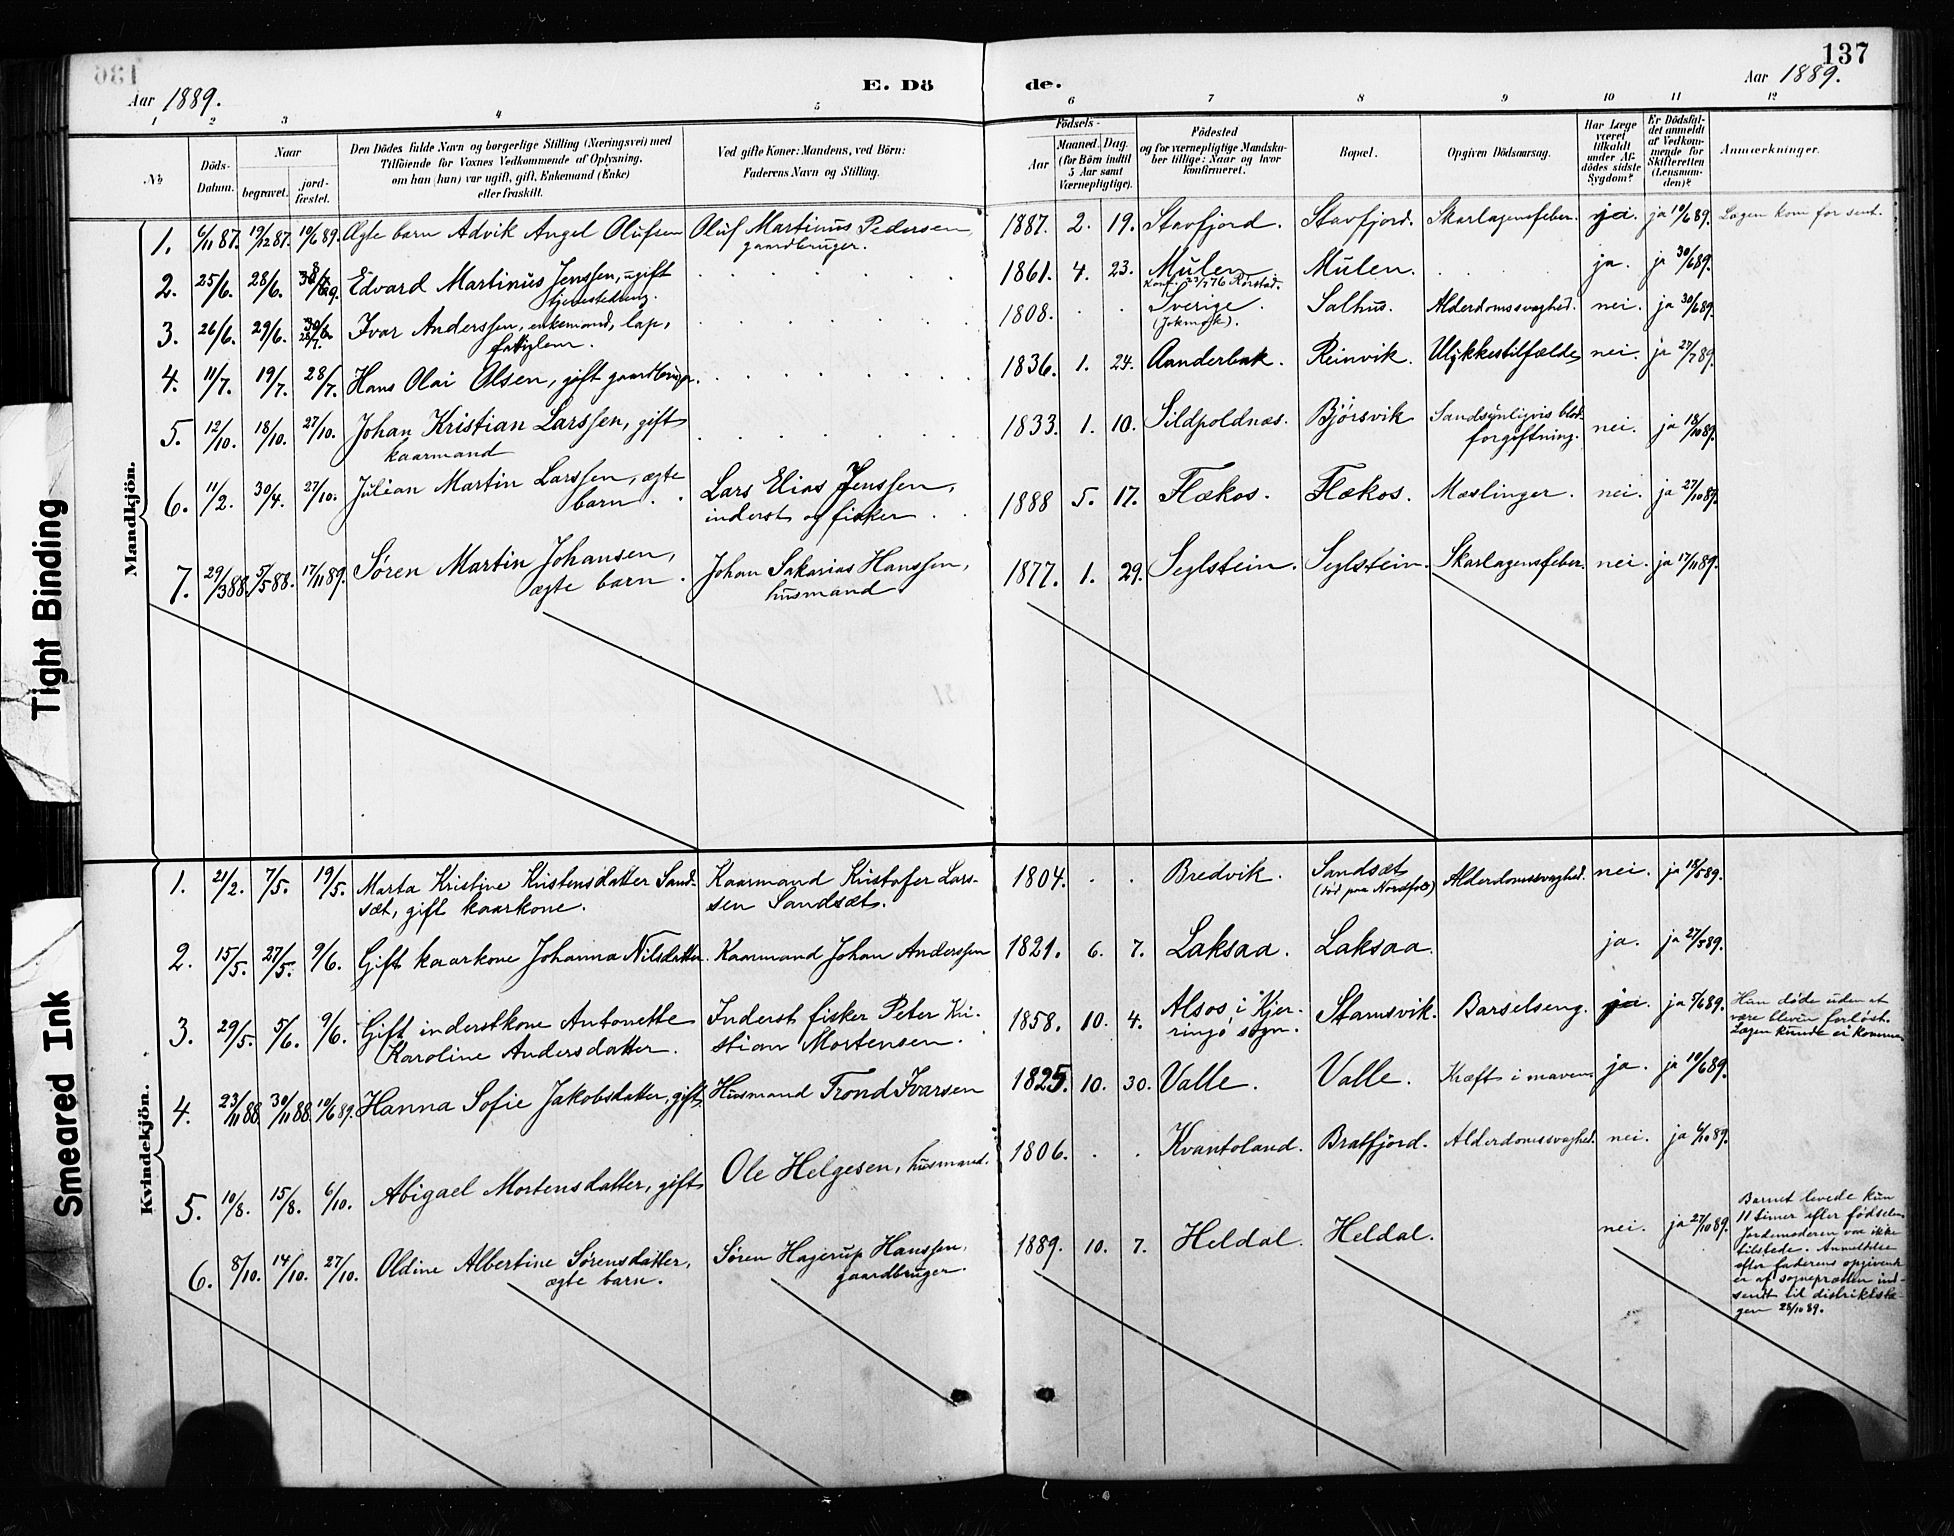 137
Aar 1889.
E. Dö
de.
Aar 1889.
1 2 3 4 5 6 7 8 9 10 11 12
No
Döds-
Datum.
Naar
begravet.
jord-
fæstet.
Den Dödes fulde Navn og borgerlige Stilling (Næringsvei) med
Tilföiende for Voxnes Vedkommende af Oplysning,
om han (hun) var ugift, gift, Enkemand (Enke)
eller fraskilt.
Ved gifte Koner: Mandens, ved Börn:
Faderens Navn og Stilling.
Födsels-
Aar
Maaned. Dag.
(for Börn indtil
5 Aar samt
Værnepligtige).
Födested
og for værnepligtige Mandska-
ber tillige: Naar og hvor
konfirmeret.
Bopæl.
Opgiven Dödsaarsag.
Har Læge
været
tilkaldt
under Af-
dödes sidste
Sygdom?
Er Dödsfal-
det anmeldt
af Vedkom-
mende for
Skifteretten
(Lensman-
den)?
Anmærkninger.
Mandkjön.
1. 6/11 87. 19/12 87. 10/6 89. Ægte barn Advik Angel Olufsen Oluf Martinus Pedersen, 1887. 2. 19. Stavfjord. Stavfjord. Skarlagensfeber. ja. ja 10/6 89. Lægen kom for sent.
gaardbruger.
2. 25/6. 28/6. Edvard Martinus Jenssen, ugift 1861. 4. 23. Mulen. Mulen. ja. ja 30/6 89.
tjenestedreng. Konf. 23/7 76 Rørstad.
3. 26/6. 29/6. Ivar Anderssen, enkemand, lap, 1808. Sverige. Salhus. Alderdomssvaghed. nei. ja 30/6 89.
fattiglem. (Jokmok).
4. 11/7. 19/7. 28/7. Hans Olai Olsen, gift gaardbruger. 1836. 1. 24. Aanderbak. Reinvik. Ulykkestilfælde nei. ja 27/7 89.
5. 12/10. 18/10. 27/10. Johan Kristian Larssen, gift 1833. 1. 10. Sildpoldnæs. Bjørsvik Sandsynligvis blod- nei. ja 18/10 89.
kaarmand forgiftning.
6. 11/2. 30/4. 27/10. Julian Martin Larssen, ægte Lars Elias Jenssen, 1888 5. 17. Flækos. Flækos. Mæslinger. nei. ja 27/10 89.
barn. inderst og fisker.
7. 29/3 88. 5/5 88. 17/11 89. Søren Martin Johansen, Johan Sakarias Hanssen, 1877. 1. 29. Seglstein. Seglstein. Skarlagensfeber. nei. ja 17/11 89.
ægte barn. husmand
Kvindekjön.
1. 21/2. 7/5. 19/5. Marta Kristine Kristensdatter Sand- Kaarmand Kristofer Lars- 1804. Bredvik. Sandsæt Alderdomssvaghed. nei. ja 18/5 89.
sæt, gift kaarkone. sen Sandsæt. (død paa Nordfold)
2. 15/5. 27/5. 9/6. Gift kaarkone Johanna Nilsdatter. Kaarmand Johan Anderssen 1821. 6. 7. Laksaa. Laksaa. ja. ja 27/5 89.
3. 29/5. 5/6. 9/6. Gift inderstkone Antonette Inderst fisker Peter Kri- 1858. 10. 4. Alsos i Kjer- Stamsvik. Barselseng. ja. ja 5/6 89. Hun døde uden at
Karoline Andersdatter. stian Mortensen. ringø sogn. være bleven forløst.
Lægen kunde ei komme
4. 23/11 88. 30/11 88. 10/6 89. Hanna Sofie Jakobsdatter, gift. Husmand Trond Ivarsen 1825. 10. 30. Valle. Valle. Kræft i maven. ja. ja 10/6 89.
5. 10/8. 15/8. 6/10. Abigael Mortensdatter, gift Ole Helgesen, husmand. 1806. Kvantoland. Bratfjord. Alderdomssvaghed. nei. ja 6/10 89.
6. 8/10. 14/10. 27/10. Oldine Albertine Sørensdatter, Søren Hagerup Hanssen, 1889. 10. 7. Heldal. Heldal. nei. ja 27/10 89.
ægte barn. gaardbruger.
Barnet levede kun
11 timer efter fødselen
Jordemoderen var ikke
tilstede. Anmeldelse
efter faderens opgivende
er af sognepresten ind-
sendt til distriktslæ-
gen 28/10 89.
Tight Binding
Smeared Ink